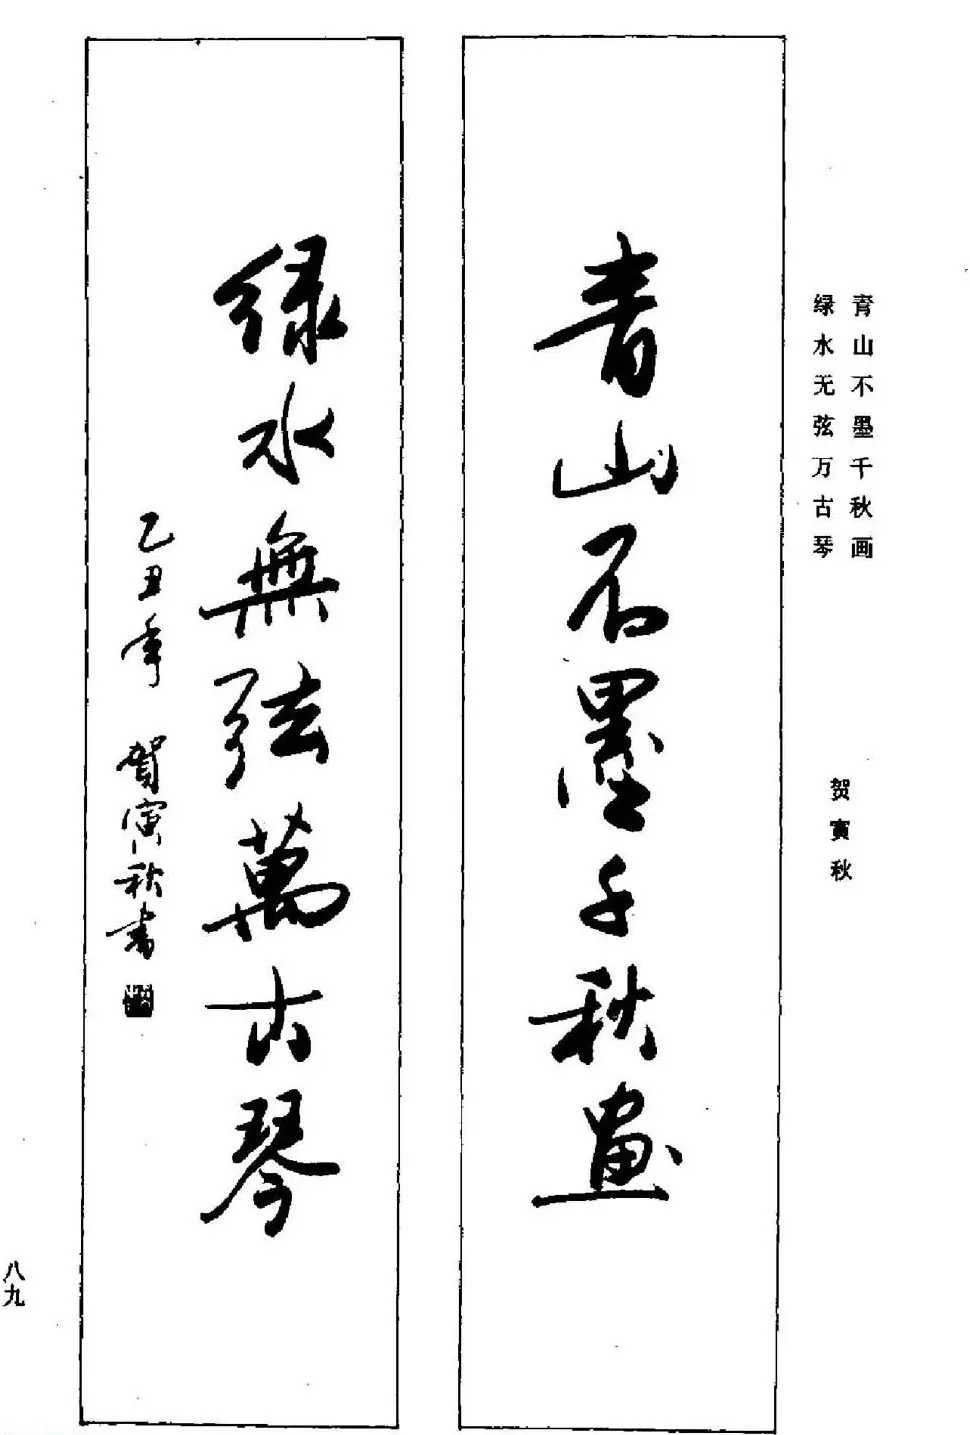 青山不墨千秋画
绿水无弦万古琴
贺寅秋
青山不墨千秋畫
绿水無弦萬古琴
乙丑年 贺寅秋书
八九